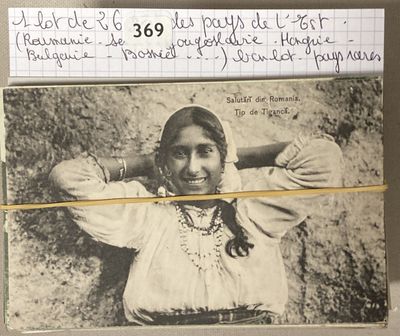 1 lot de 26 des pays de l'Est.
369
(Roumanie - ougoslavie - Hongrie -
Bulgarie - Bosnie - ...) bon lot - pays rares
Salutări din Romania.
Tip de Țigancă.